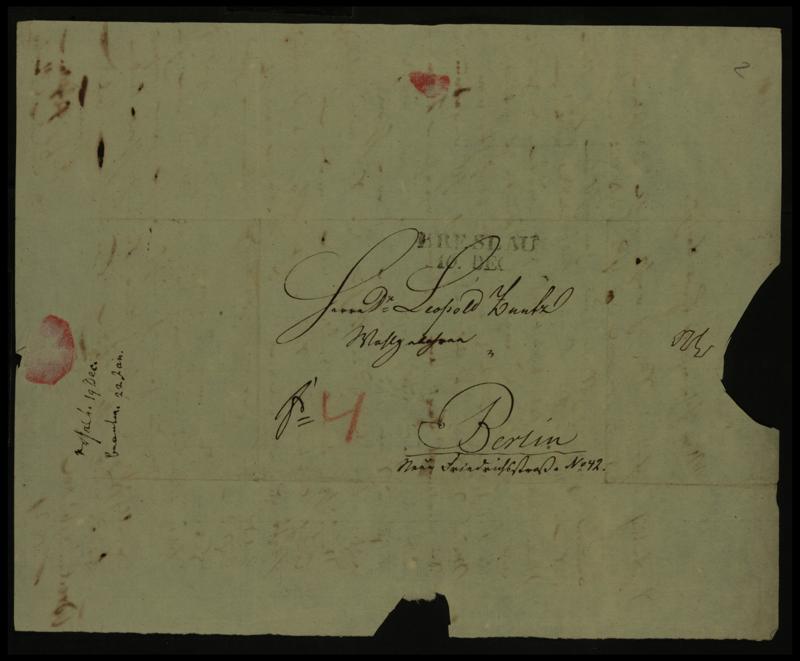 2
BRESLAU
10. DEC
Herrn Dr. Leopold Zuntz
Wohlgeboren
4
Berlin
Neue Friedrichsstraße No 42.
erhalt. 19 Dec.
beantw. 22 Jan.